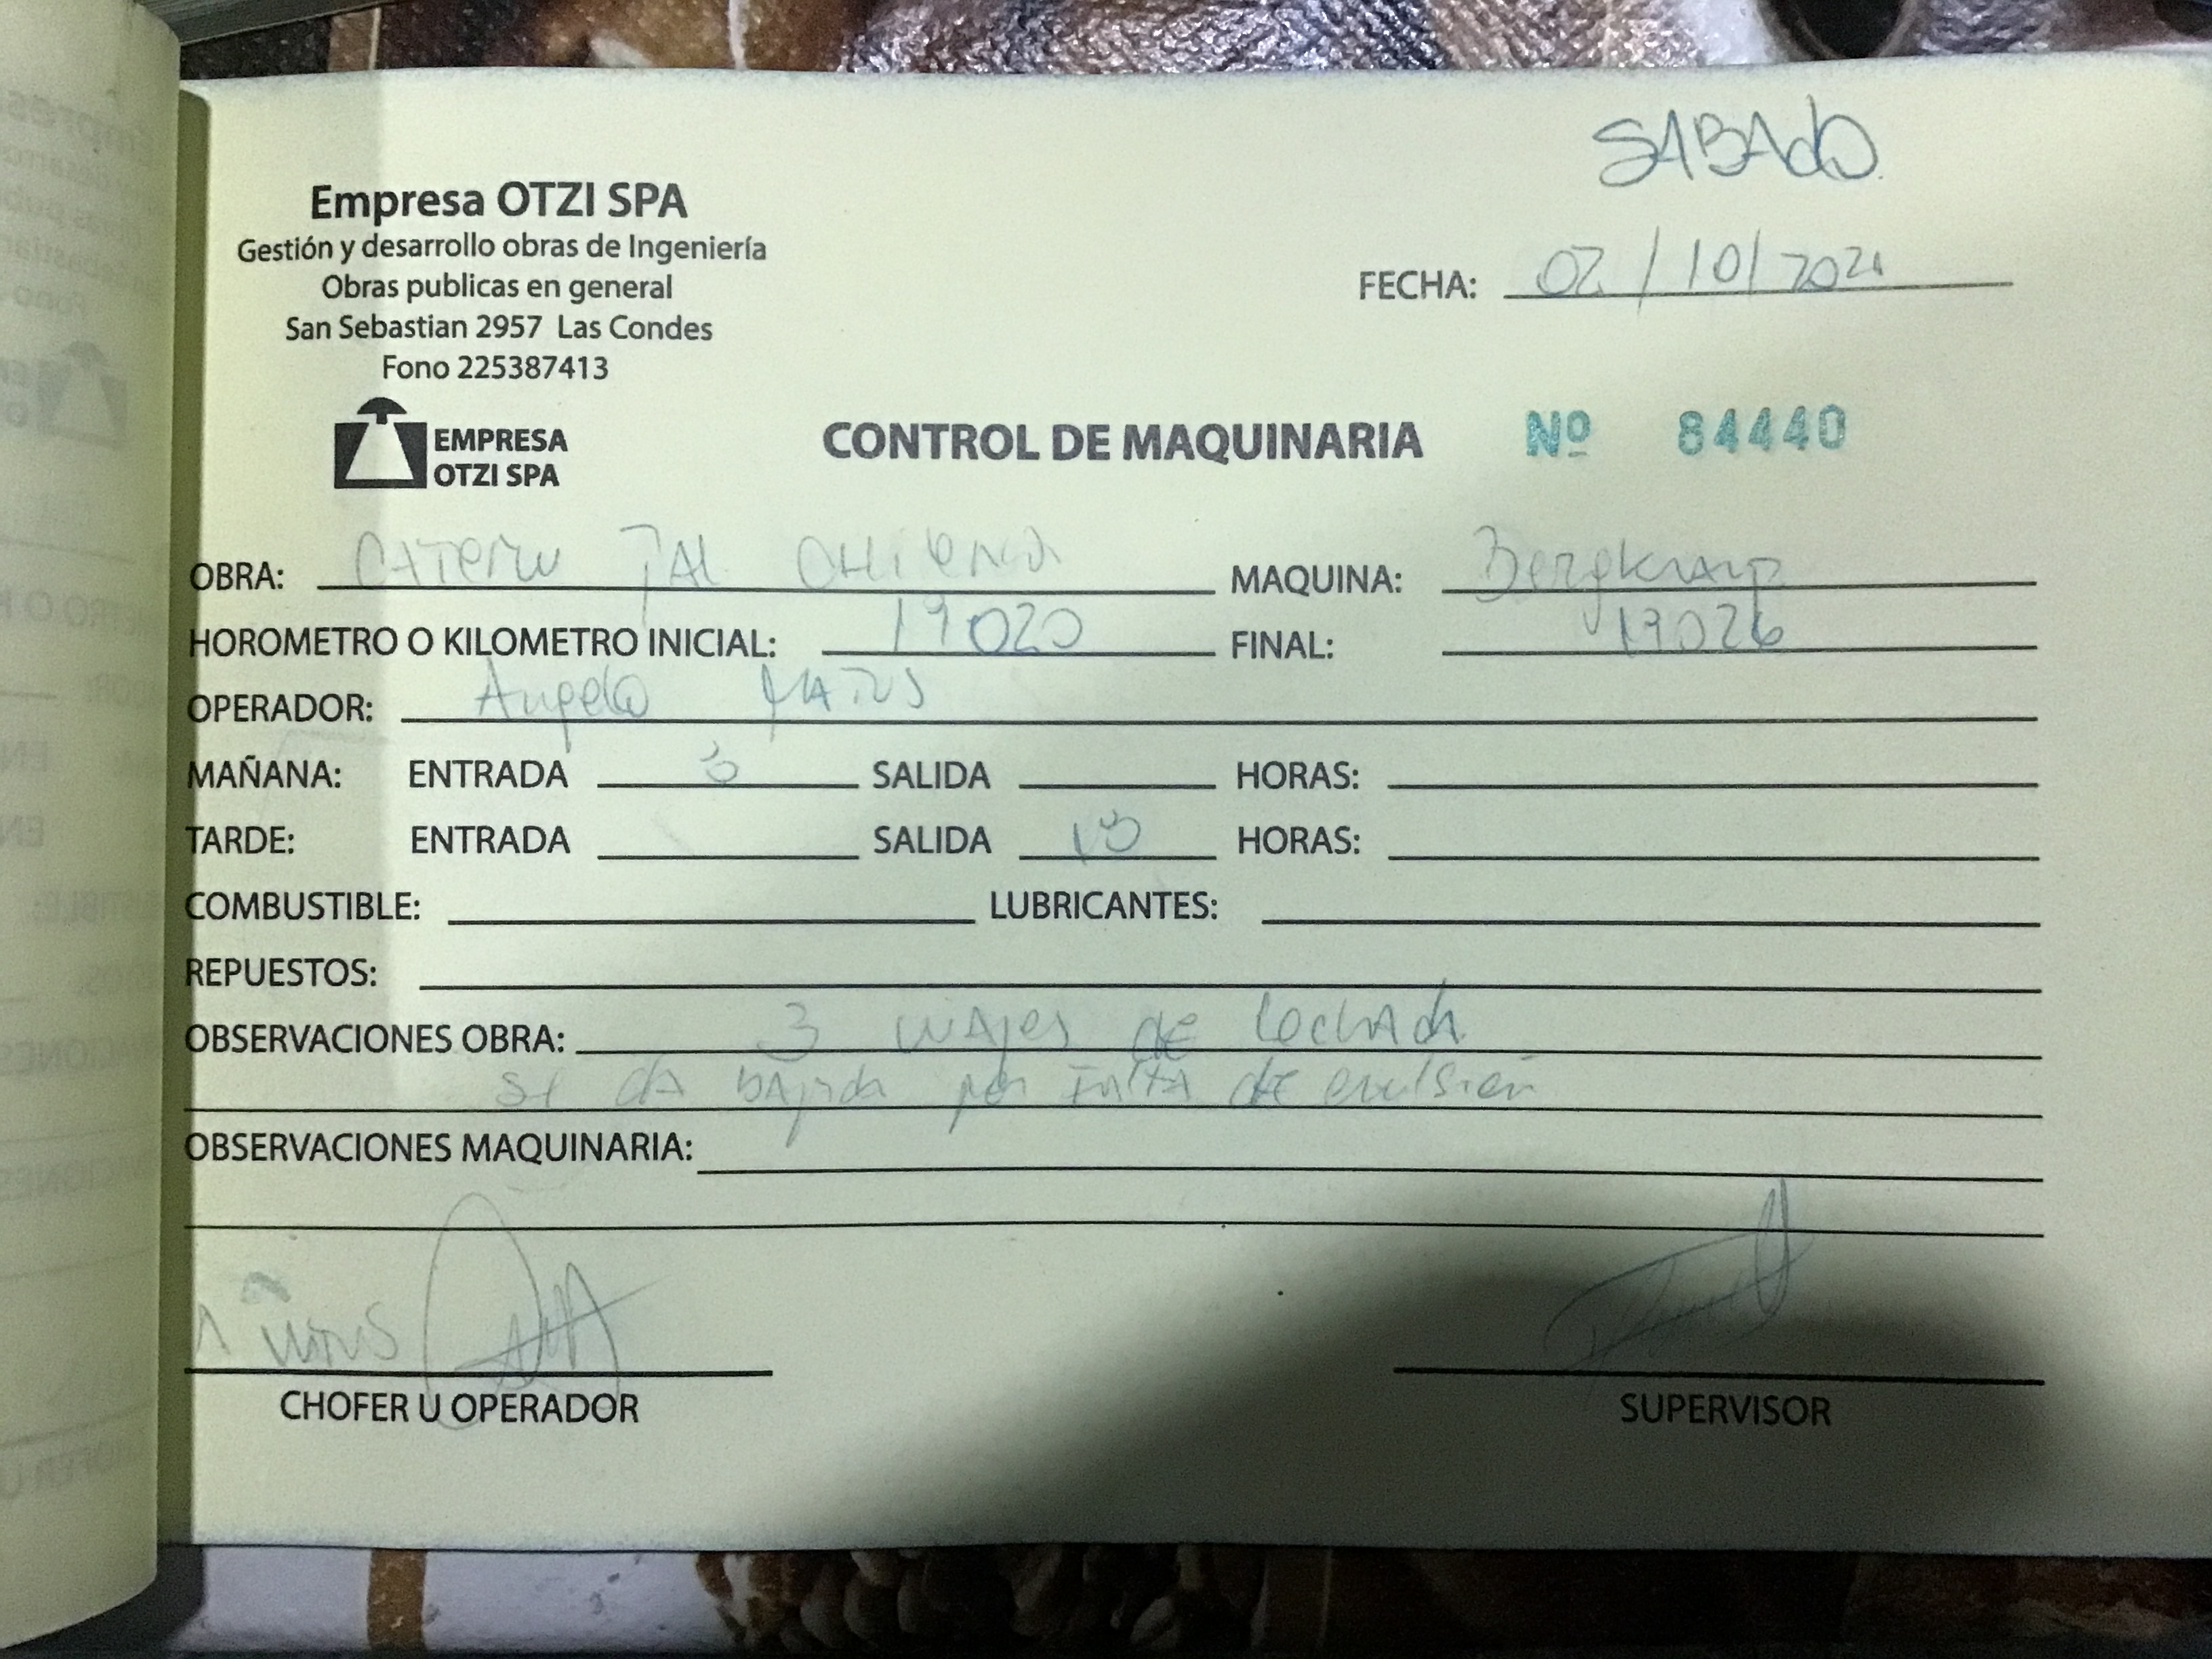 SABAdo
Empresa OTZI SPA
Gestión y desarrollo obras de Ingeniería
Obras publicas en general
San Sebastian 2957 Las Condes
Fono 225387413
FECHA: 02/10/2021
EMPRESA
OTZI SPA
CONTROL DE MAQUINARIA Nº 8440
OBRA: MAQUINA:
HOROMETRO O KILOMETRO INICIAL: 19020 FINAL: 19026
OPERADOR: Angelo
MAÑANA: ENTRADA 8 SALIDA HORAS:
TARDE: ENTRADA SALIDA HORAS:
COMBUSTIBLE: LUBRICANTES:
REPUESTOS:
OBSERVACIONES OBRA: 3 viajes de lechada
se da bajada por falta de emulsión
OBSERVACIONES MAQUINARIA:
CHOFER U OPERADOR SUPERVISOR